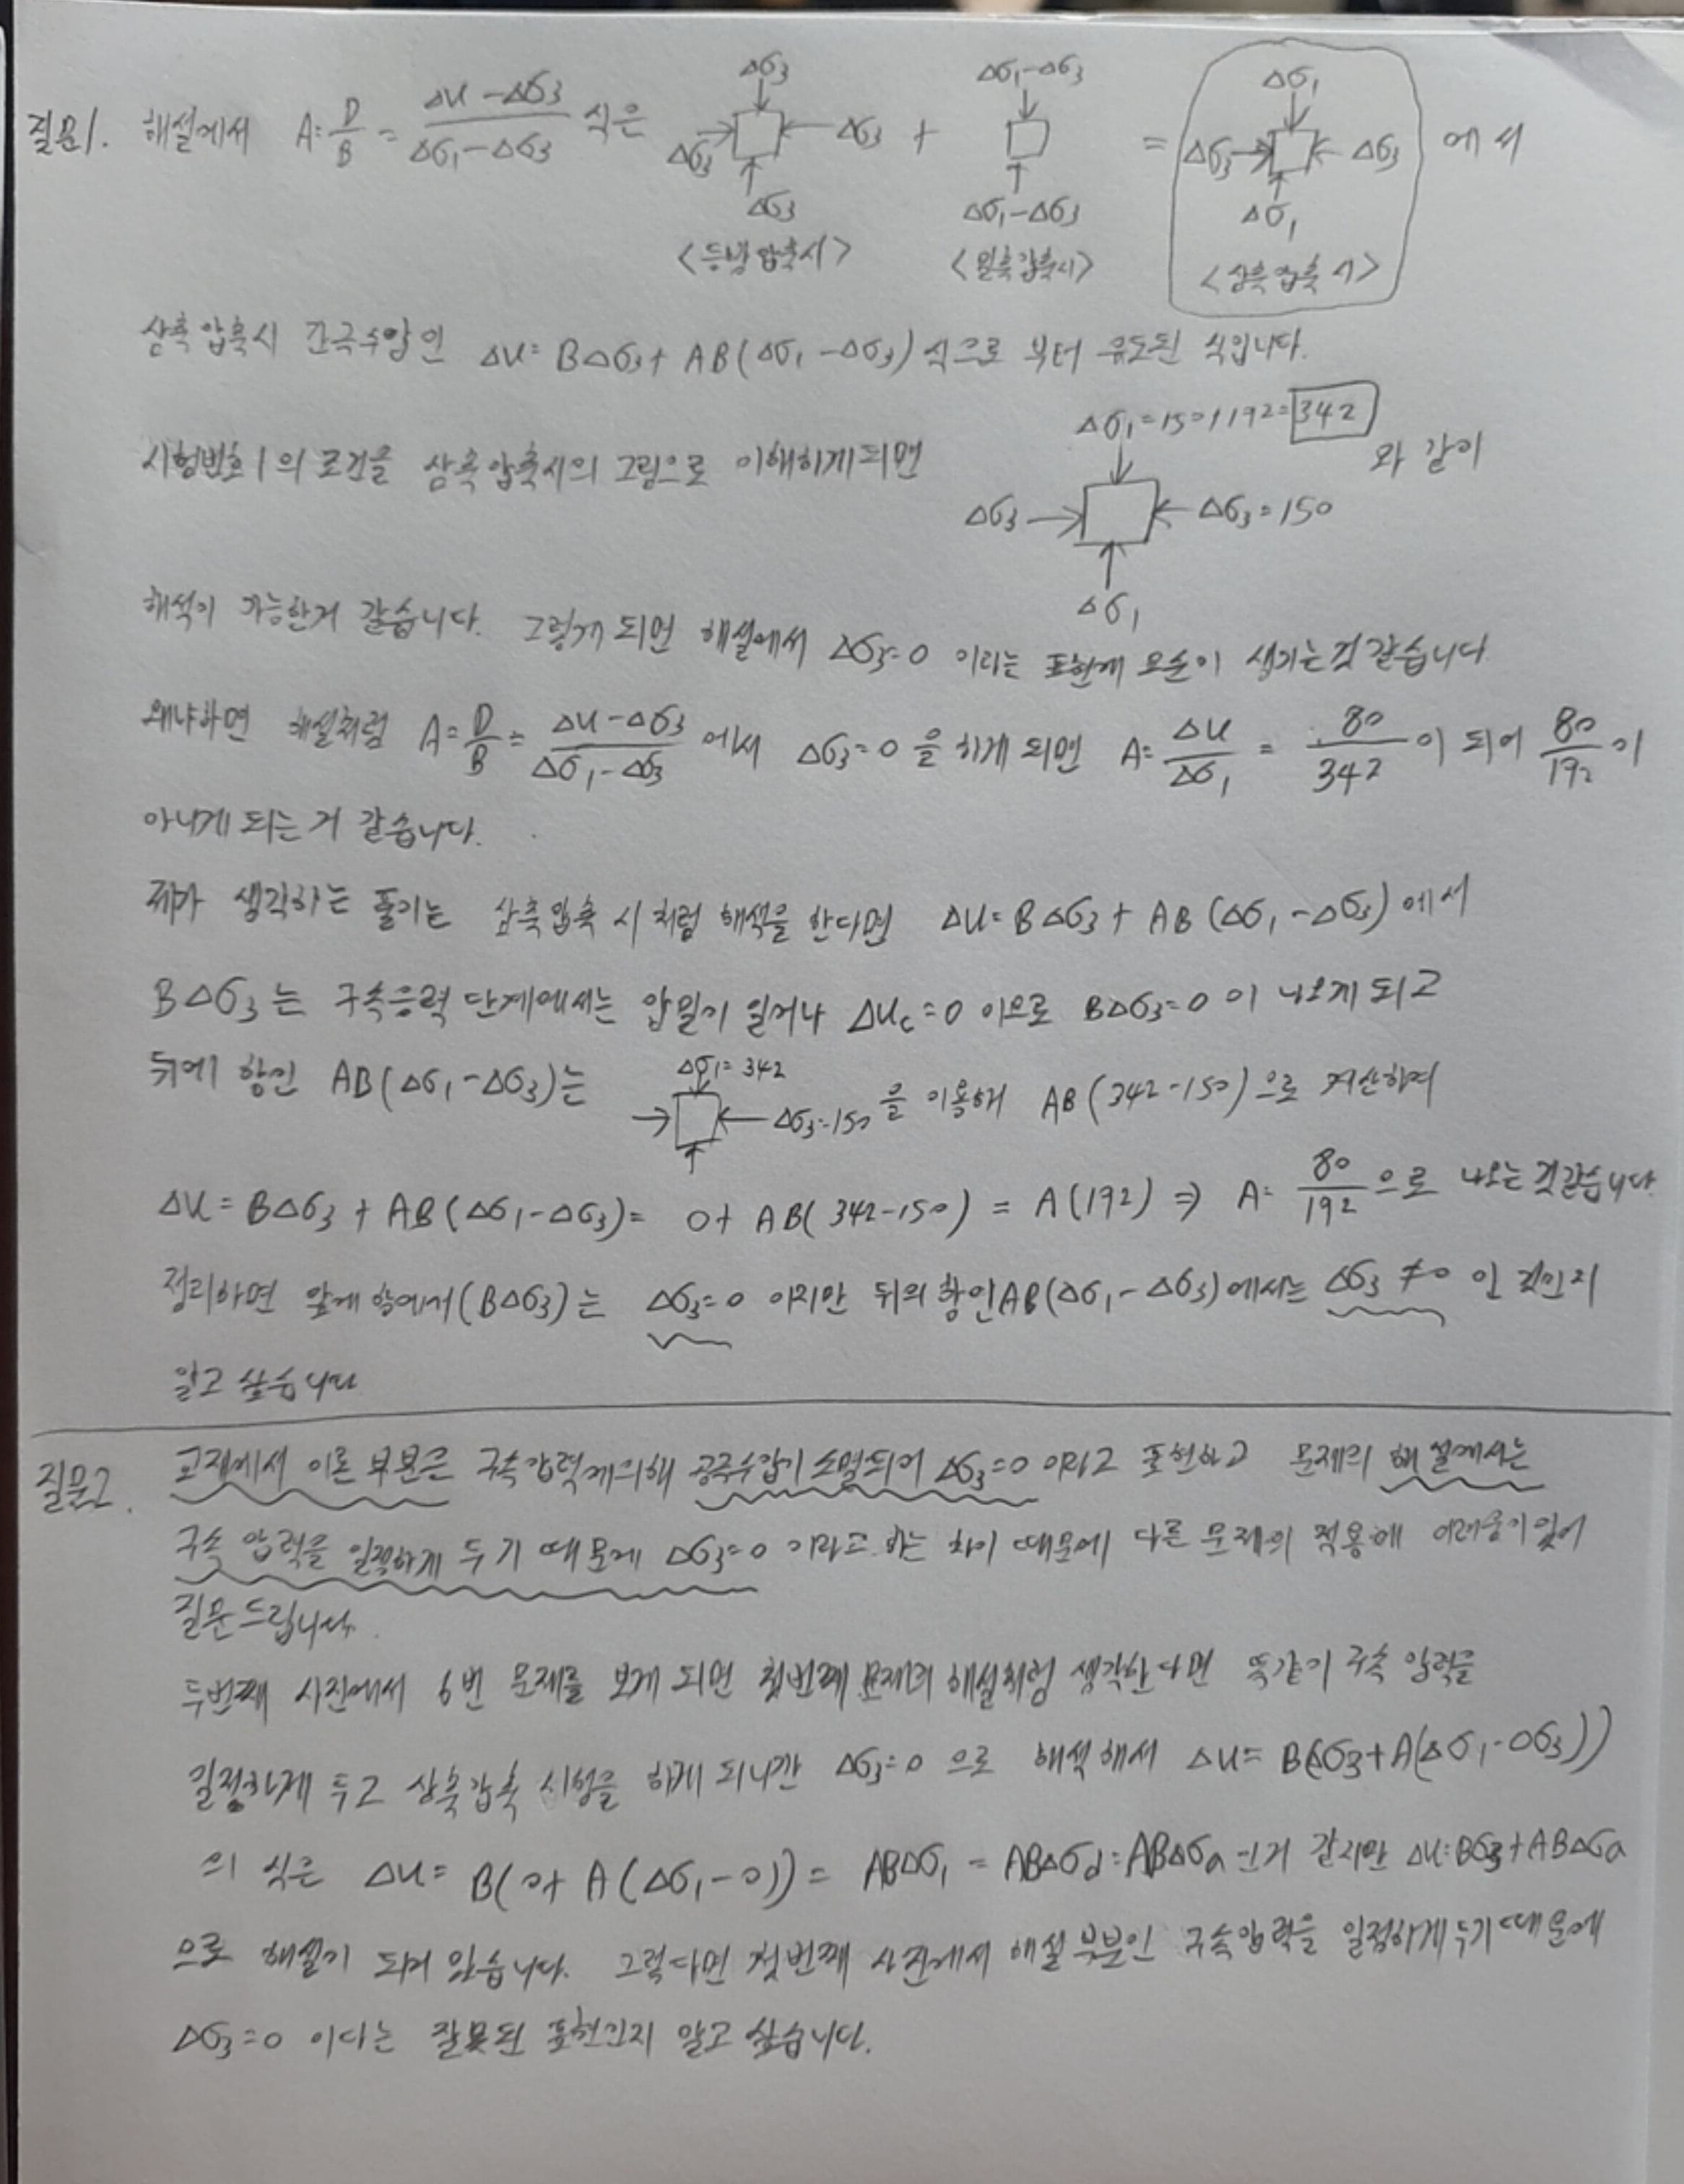 질문1. 해설에서 A=D/B=(Δu-Δσ3)/(Δσ1-Δσ3) 식은 Δσ3 Δσ3 Δσ3 Δσ3 + Δσ1-Δσ3 Δσ1-Δσ3 = Δσ1 Δσ3 Δσ3 Δσ1 에서
<등방압축시> <일축압축시> <삼축압축시>
삼축압축시 간극수압인 Δu=BΔσ3+AB(Δσ1-Δσ3) 식으로 부터 유도된 식입니다.
시험번호 1의 조건을 삼축압축시의 그림으로 이해하게되면 Δσ1=150+192=342 Δσ3 Δσ3=150 Δσ1 와 같이
해석이 가능한거 같습니다. 그렇게 되면 해설에서 Δσ3=0 이라는 표현에 모순이 생기는것 같습니다
왜냐하면 해설처럼 A=D/B=(Δu-Δσ3)/(Δσ1-Δσ3) 에서 Δσ3=0 을 하게 되면 A=Δu/Δσ1 = 80/342 이 되어 80/192 이
아니게 되는 거 같습니다.
제가 생각하는 풀이는 삼축압축 시 처럼 해석을 한다면 Δu=BΔσ3+AB(Δσ1-Δσ3) 에서
BΔσ3는 구속응력 단계에서는 압밀이 일어나 Δuc=0 이므로 BΔσ3=0 이 나오게 되고
뒤에 항인 AB(Δσ1-Δσ3)는 Δσ1=342 Δσ3=150 을 이용해 AB(342-150)으로 계산하여
Δu=BΔσ3+AB(Δσ1-Δσ3)= 0+AB(342-150) = A(192) ⇒ A=80/192 으로 나오는 것같습니다.
정리하면 앞에 항에서(BΔσ3)는 Δσ3=0 이지만 뒤의 항인AB(Δσ1-Δσ3)에서는 Δσ3≠0 인 것인지
알고 싶습니다
질문2. 교재에서 이론 부분은 구속압력에의해 공극수압이 소멸되어 Δσ3=0 이라고 표현하고 문제의 해설에서는
구속 압력을 일정하게 두기 때문에 Δσ3=0 이라고 하는 차이 때문에 다른 문제의 적용에 어려움이있어
질문드립니다.
두번째 사진에서 6번 문제를 보게 되면 첫번째 문제의 해설처럼 생각한다면 똑같이 구속 압력을
일정하게 두고 삼축압축 시험을 하게 되니깐 Δσ3=0 으로 해석해서 Δu=B(Δσ3+A(Δσ1-Δσ3))
의 식은 Δu= B(0+A(Δσ1-0))= ABΔσ1 = ABΔσd=ABΔσa 인거 같지만 Δu=Bσ3+ABΔσa
으로 해설이 되어 있습니다. 그렇다면 첫번째 사진에서 해설 부분인 구속압력을 일정하게두기때문에
Δσ3=0 이다는 잘못된 표현인지 알고 싶습니다.